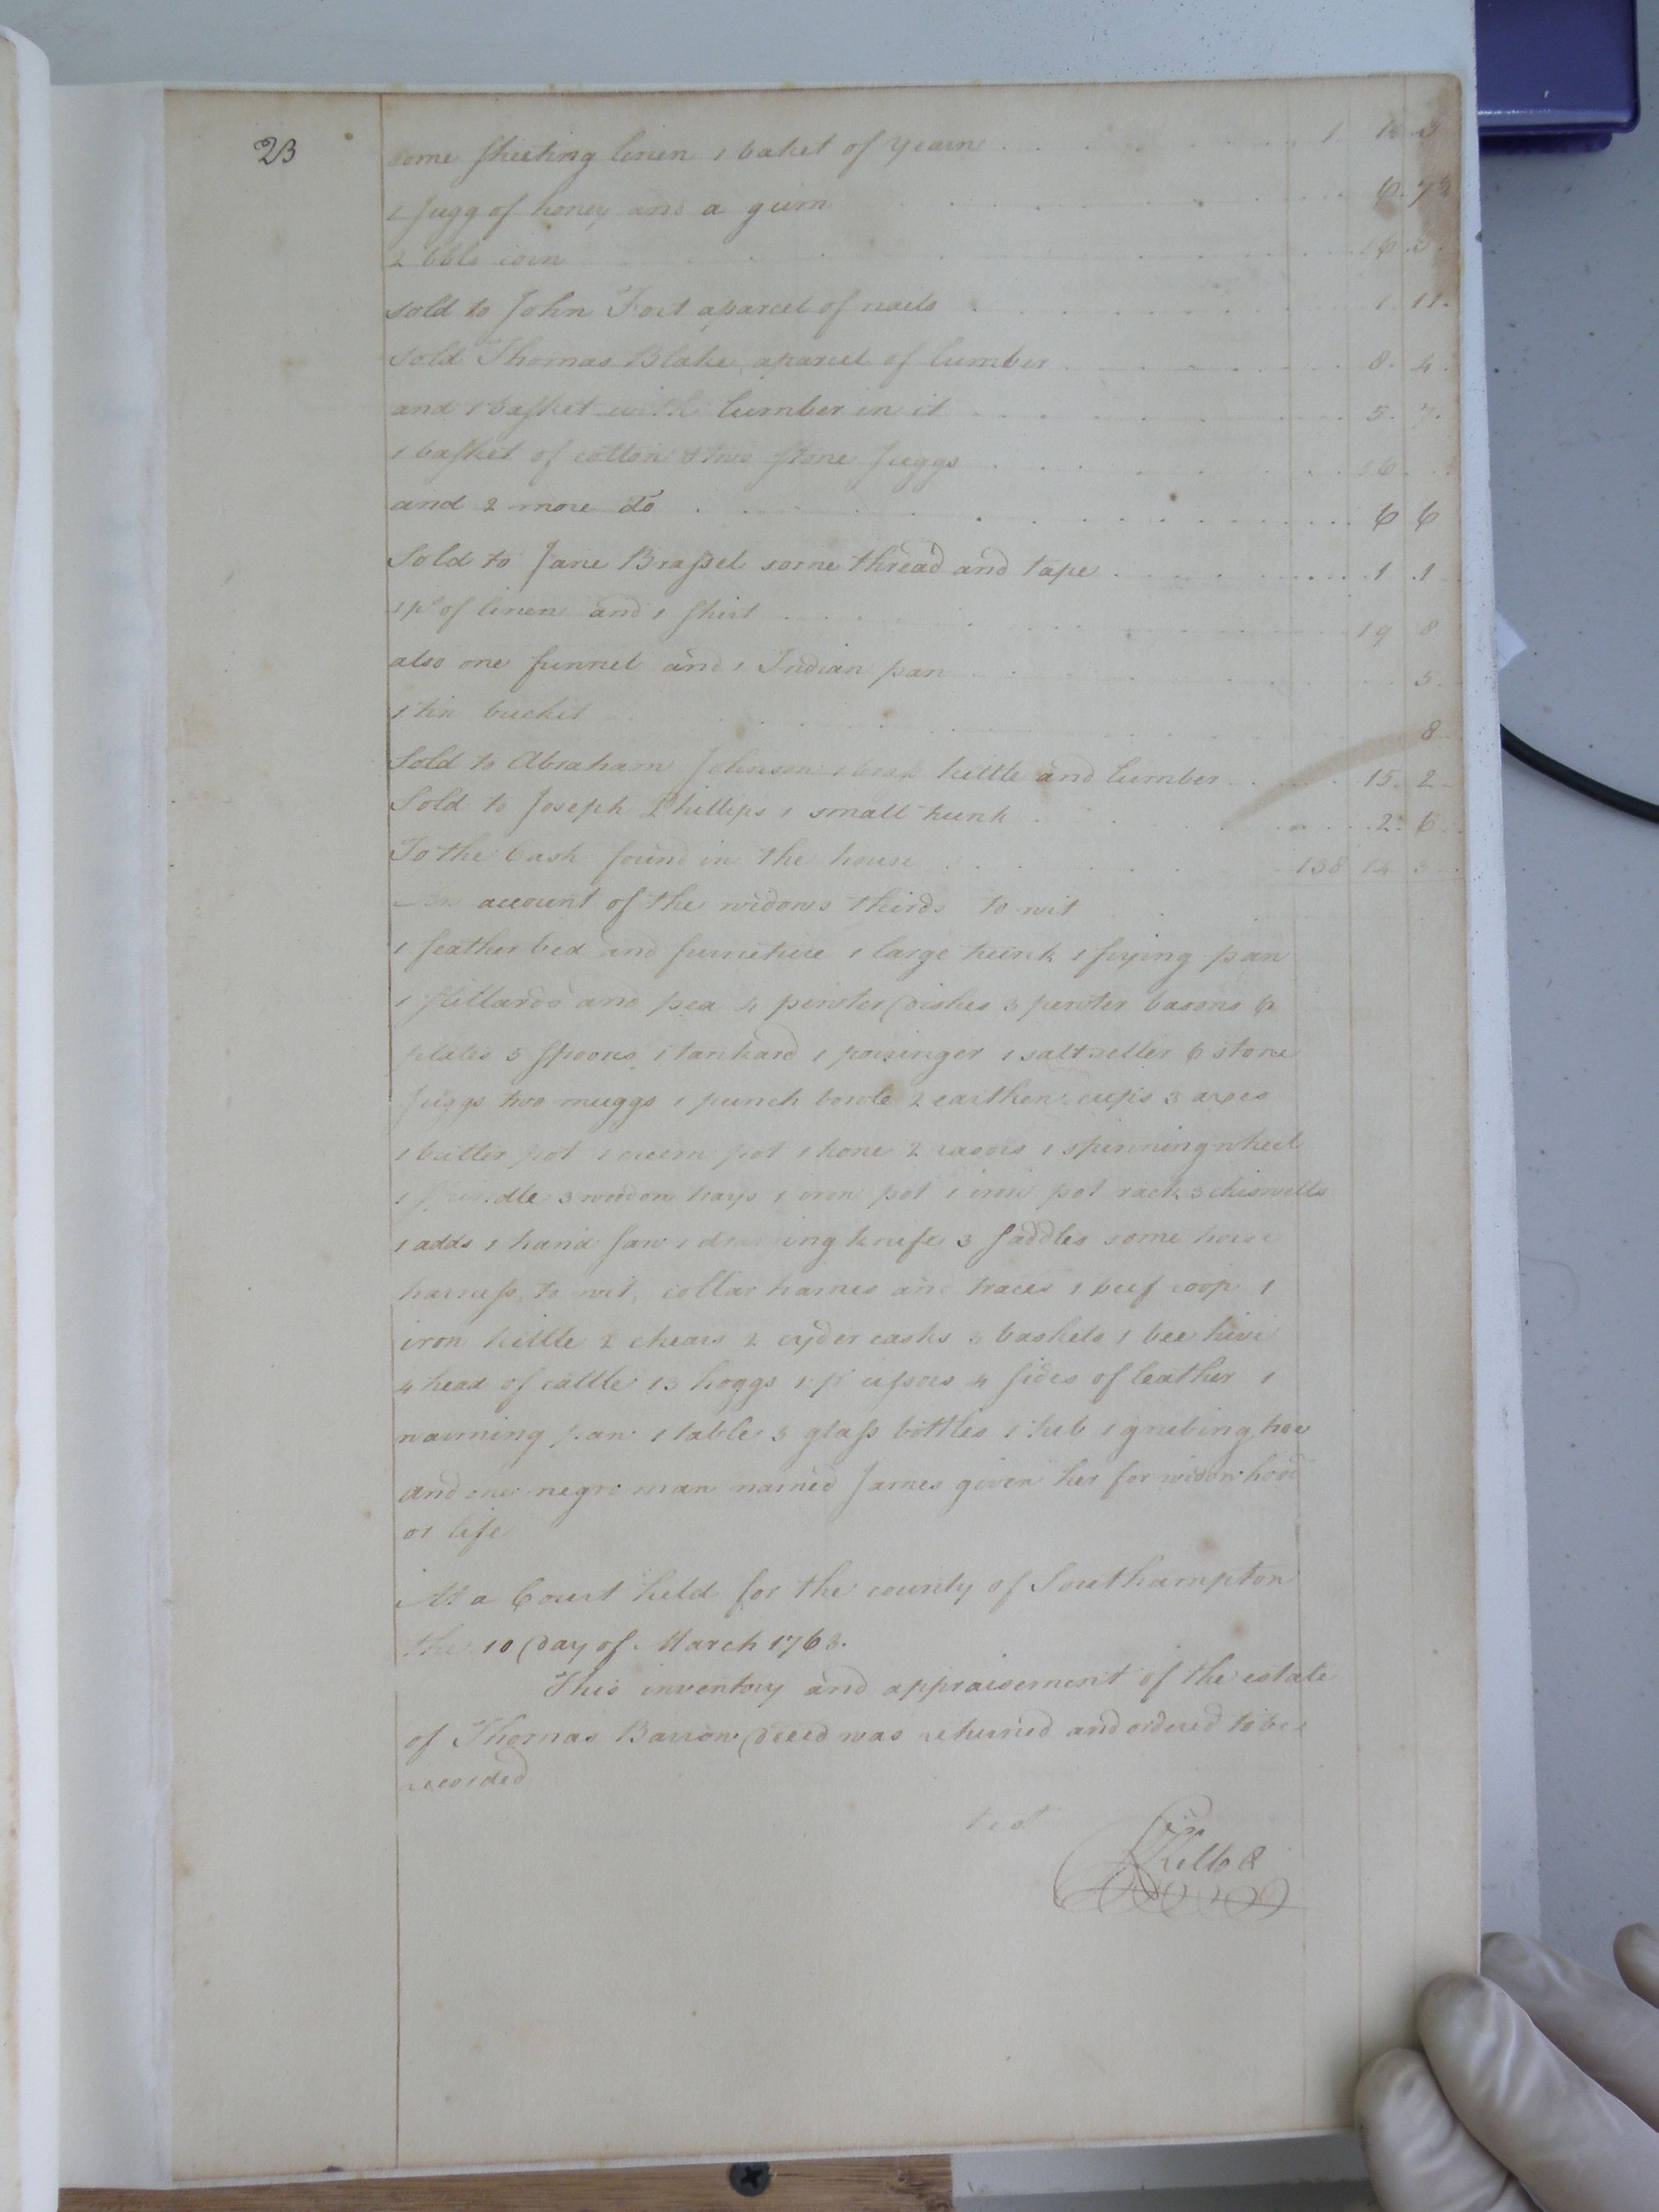 23
some sheeting linen 1 baket of yearn 1
1 Jugg of honey and a gum 6. 7½
2 bbls corn 16 3.
sold to John Fort aparcel of nails 1. 11.
Sold Thomas Blake aparcel of lumber 8. 4.
and 1 basket with lumber in it 5. 7.
1 basket of cotton & two stone Juggs 16
and 2 more do 6 6
Sold to Jane Brassel some thread and tape 1 .1
1 pr of linen and 1 shirt 19 8
also one funnel and 1 Indian pan 5.
1 tin bucket 8
Sold to Abraham Johnson 1 kettle and lumber 15. 2
Sold to Joseph Phillips 1 small trunk 2. 6
To the Cash found in the house 138 14 3
An account of the widows thirds to wit
1 feather bed and furniture 1 large trunk 1 frying pan
1 stillards and pea 4 pewter dishes 3 pewter basons 6
plates 5 spoons 1 tankard 1 poringer 1 saltseller 6 stone
Juggs two muggs 1 punch bowle 2 earthen cups 3 axes
1 butter pot 1 cream pot 1 hone 2 rasors 1 spinningwheel
1 3 wooden trays 1 iron pot 1 iron pot rack 3 chiswells
1 adds 1 hand saw 1 drawing knife 3 saddles some horse
harness, to wit, collar hames and traces 1 beef coop 1
iron kittle 2 chears 2 cyder casks 3 baskets 1 bee hive
4 head of cattle 13 hoggs 1 pr sissors 4 sides of leather 1
warming pan 1 table 3 glass bottles 1 tub 1 grubing hoe
and one negro man named James given her for widowhood
or life
At a Court held for the county of Southampton
the 10 day of March 1763.
This inventory and appraisement of the estate
of Thomas Barrow deced was returned and ordered to be
recorded
test
R Kello C